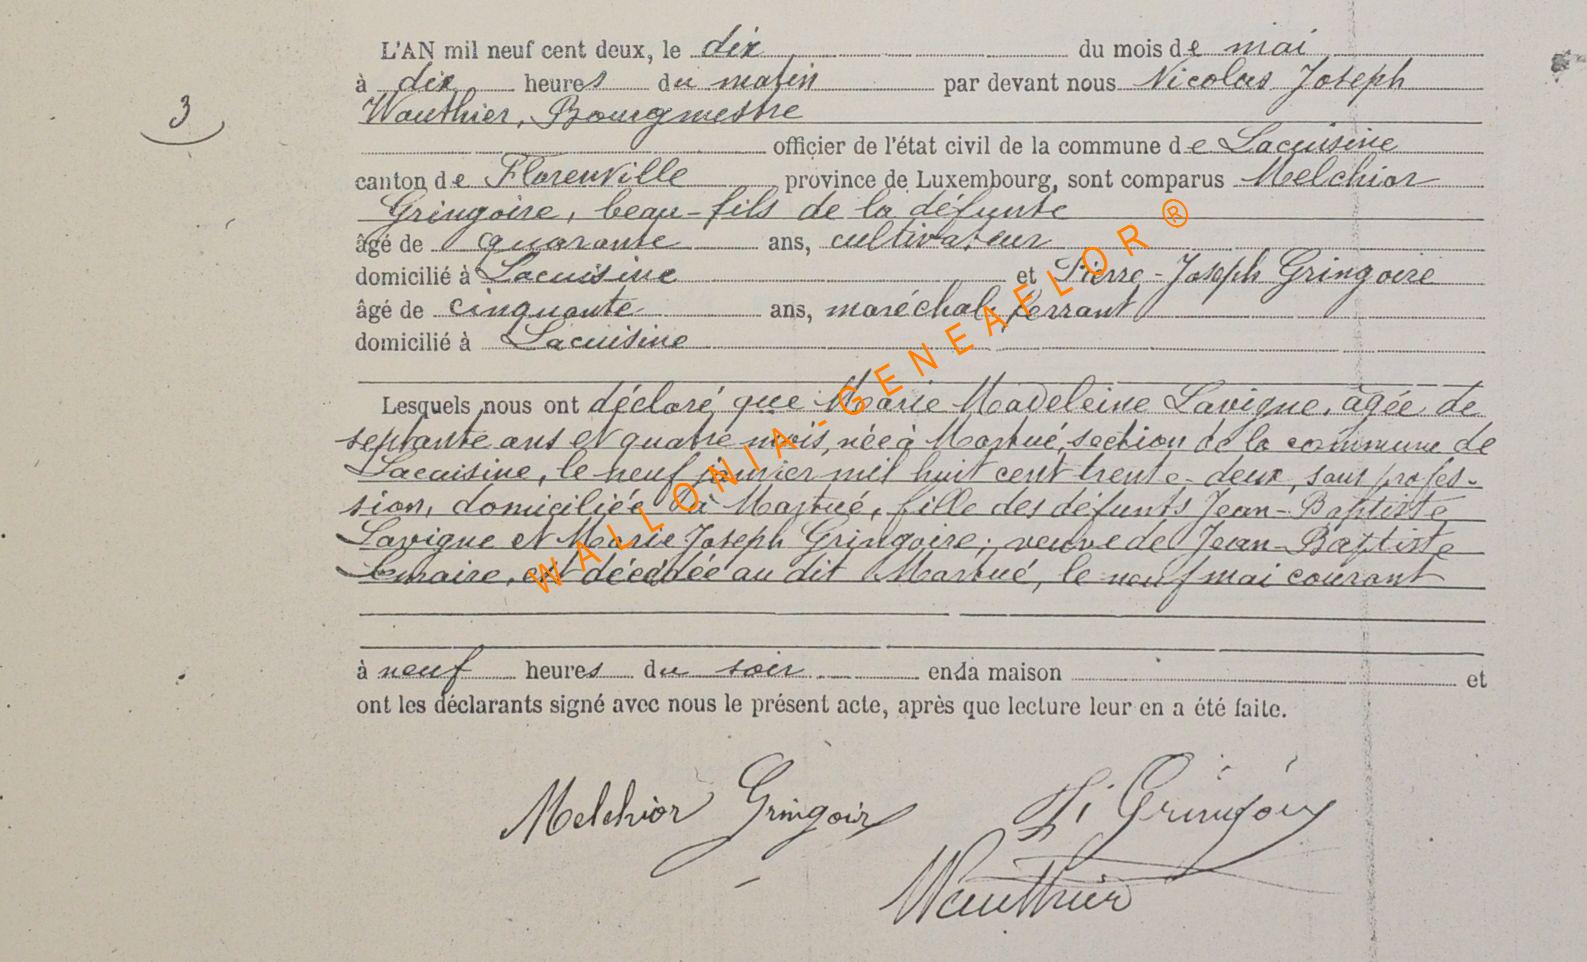 L'AN mil neuf cent deux, le dix du mois de mai
à dix heures du matin par devant nous Nicolas Joseph
3
Wauthier, Bourgmestre
officier de l'état civil de la commune de Lacuisine
canton de Florenville province de Luxembourg, sont comparus Melchior
Gringoire, beau-fils de la défunte
âgé de quarante ans, cultivateur
domicilié à Lacuisine et Pierre-Joseph Gringoire
âgé de cinquante ans, maréchal-ferrant
domicilié à Lacuisine
Lesquels nous ont déclaré que Marie Madeleine Lavigne, âgée de
septante ans et quatre mois, née à Martué, section de la commune de
Lacuisine, le neuf janvier mil huit cent trente-deux, sans profes-
sion, domiciliée à Martué, fille des défunts Jean-Baptiste
Lavigne et Marie Joseph Gringoire; veuve de Jean-Baptiste
Lemaire, est décédée au dit Martué, le neuf mai courant
à neuf heures du soir en la maison et
ont les déclarants signé avec nous le présent acte, après que lecture leur en a été faite.
Melchior Gringoire
Gringoire
Wauthier
WALLONIA-GENEAFLOR ®